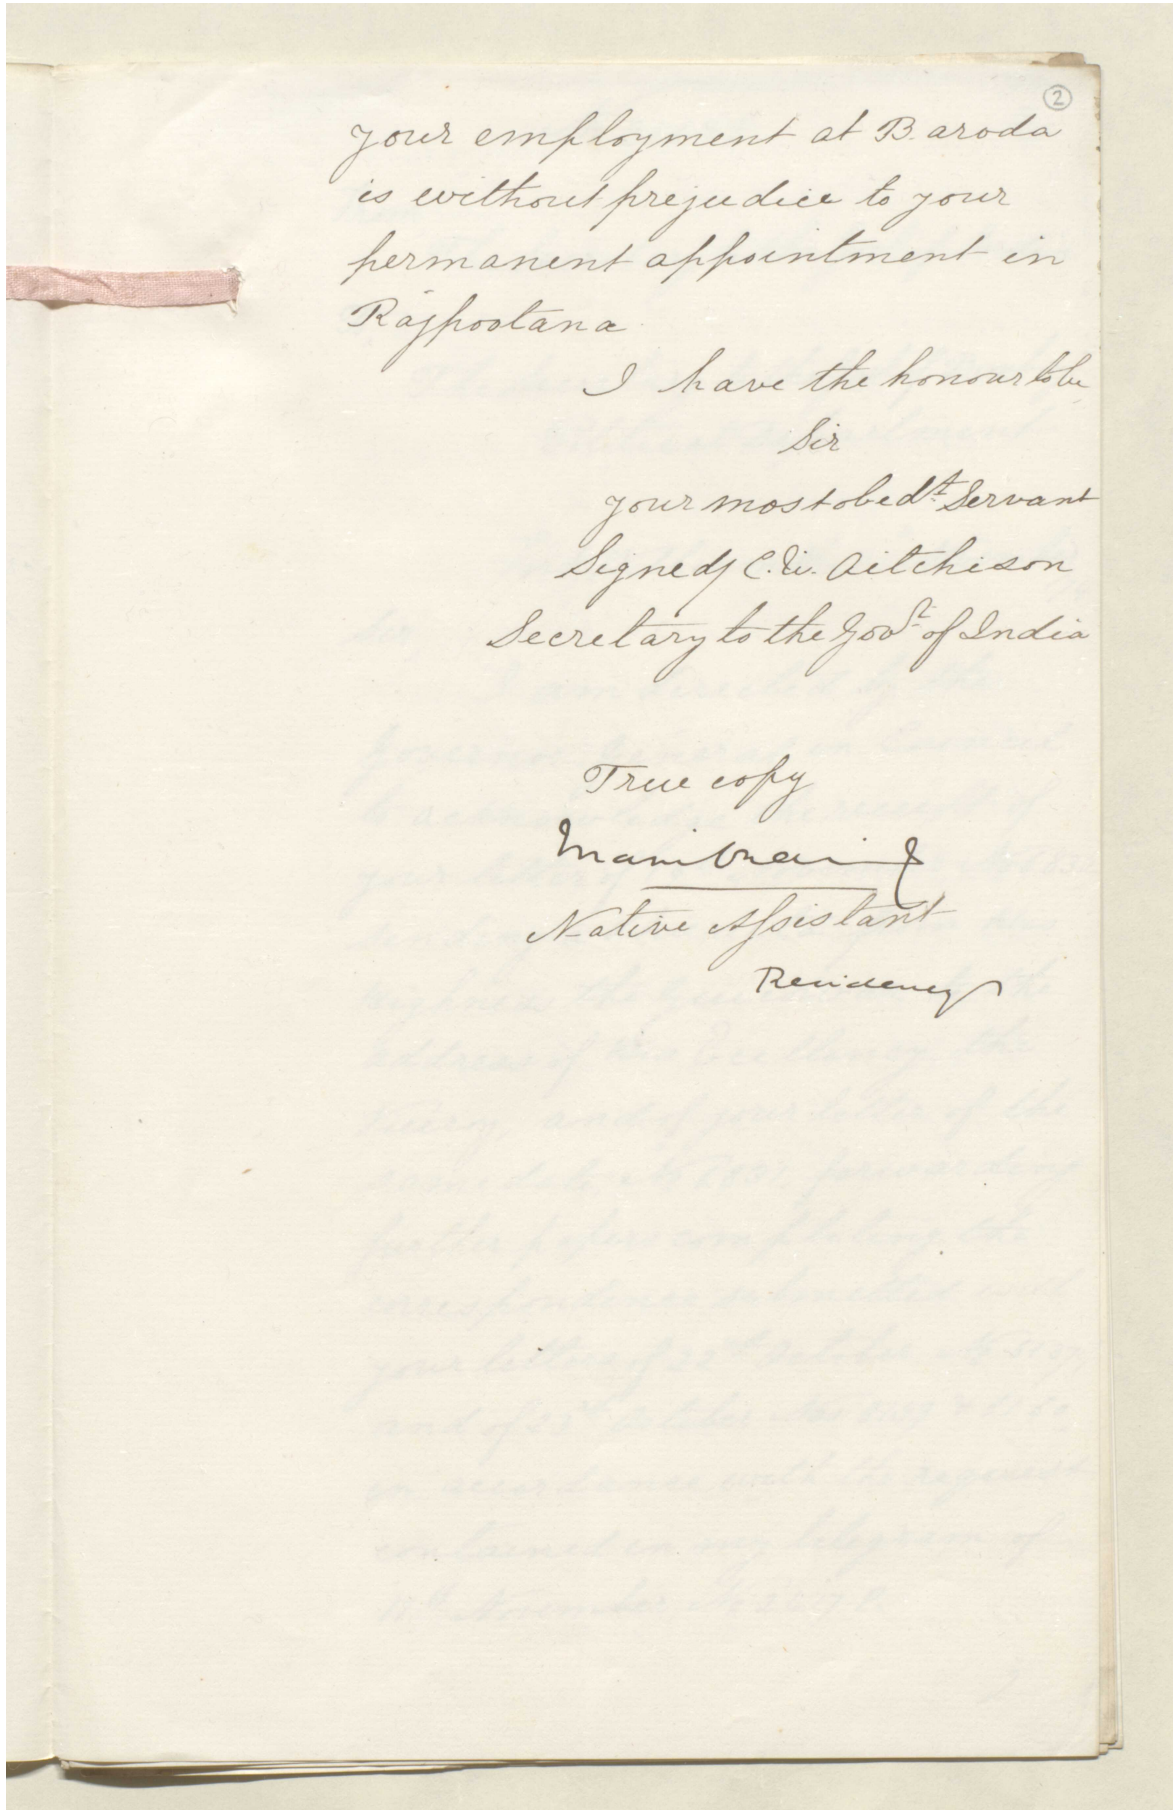 2
your employment at Baroda
is without prejudice to your
permanent appointment in
Rajpootana
I have the honour to be
Sir
your most obedt. Servant
Signed/ C. U. Aitchison
Secretary to the Govt. of India
True copy
Native Assistant
Residency